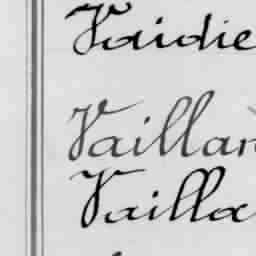 Vaidie
Vaillan
Vailla